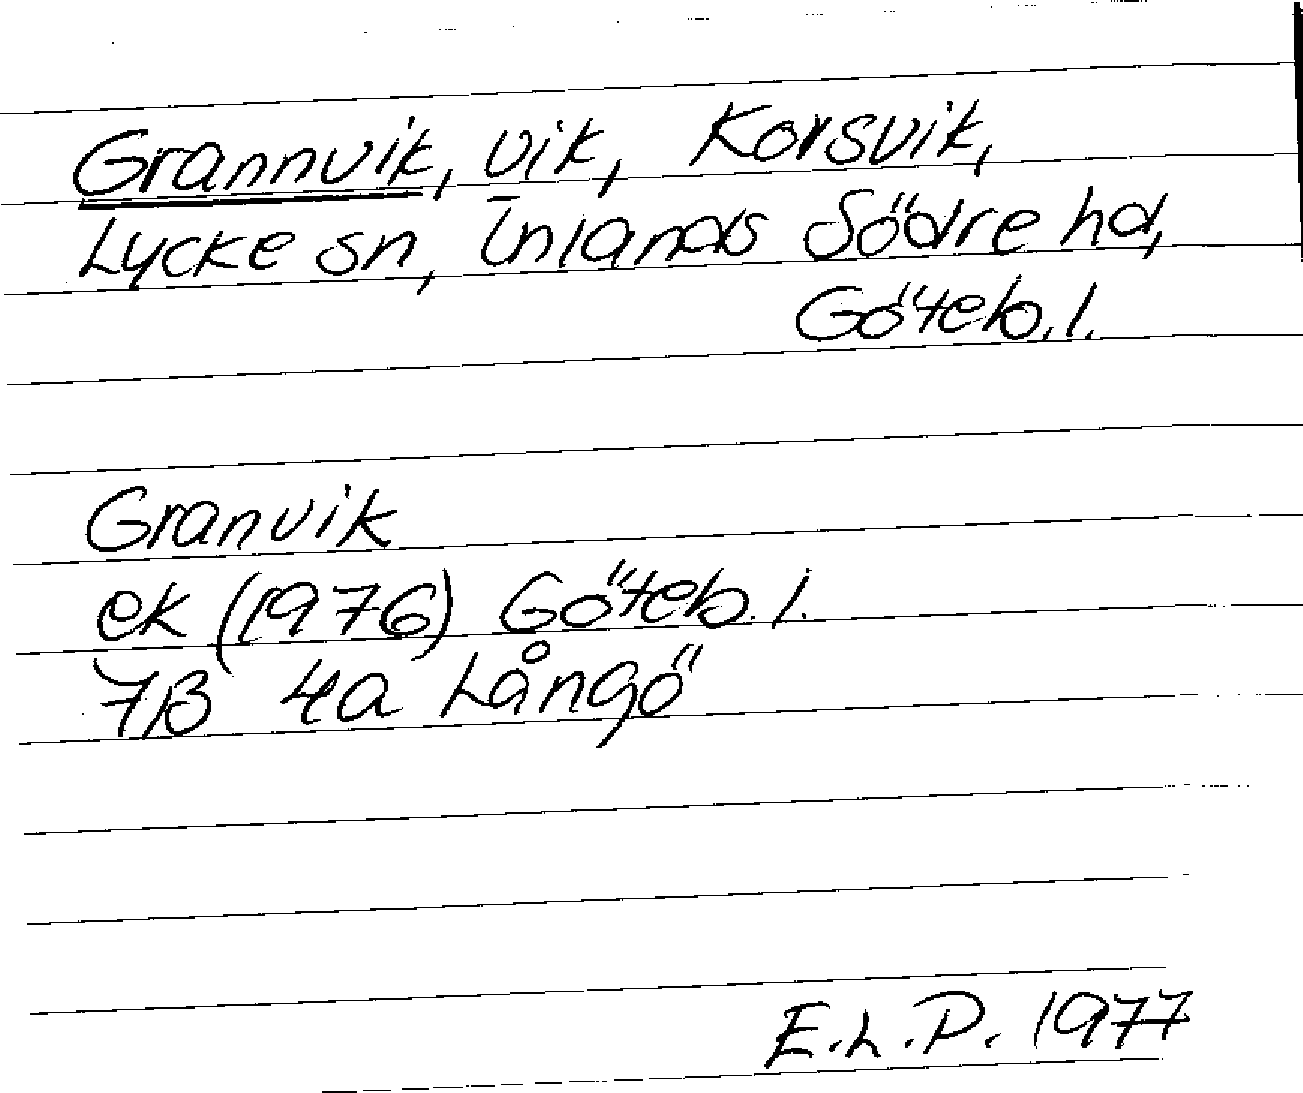 Grannvik, vik, Korsvik,
Lycke sn, Inlands Södre hd,
Göteb. l.
Granvik
ek (1976) Göteb. l.
7B 4a Långö
E.L.P. 1977